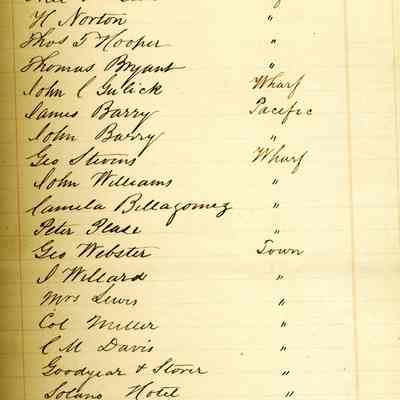 H Norton "
Thos T Hooper "
Thomas Bryant "
John C Gulick Wharf
James Barry Pacific
John Barry "
Geo Stevens Wharf
John Williams "
Camela Bellagomez "
Peter Please "
Geo Webster Town
I Willard "
Mrs Lewis "
Col Miller "
C M Davis "
Goodyear & Storer "
Solano Hotel "